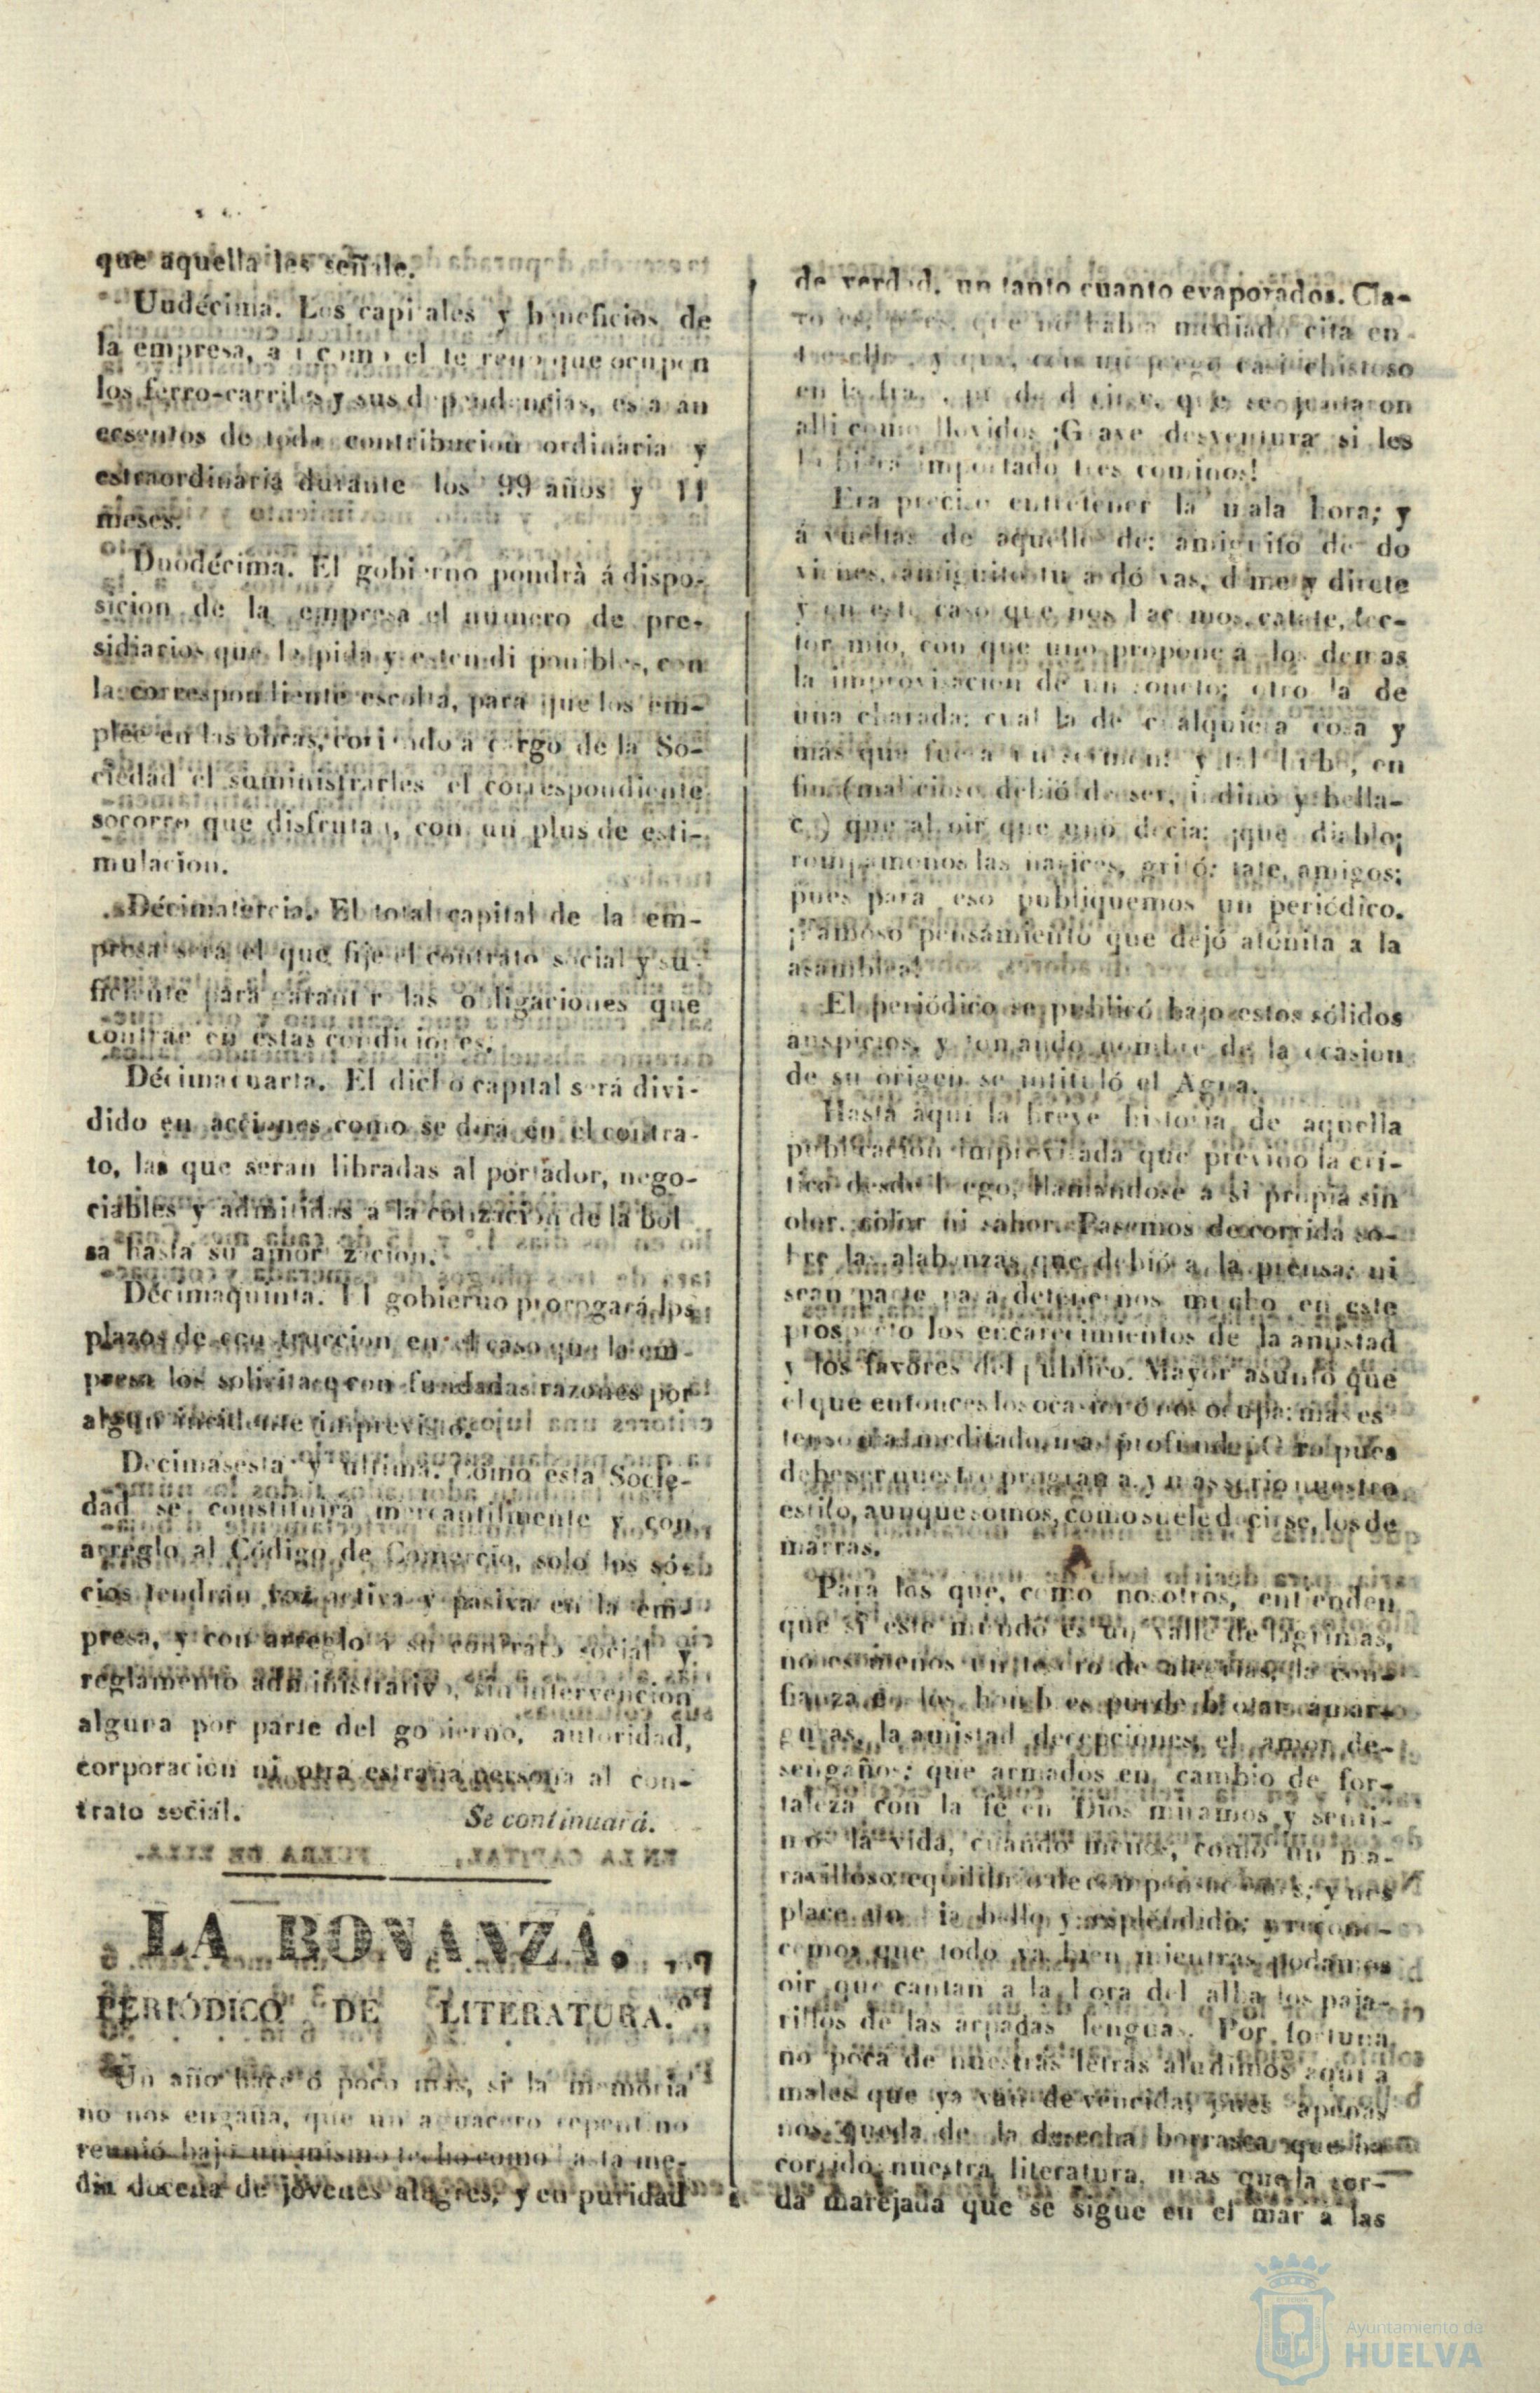 que aquella les señale.
Undécima. Los capitales y beneficios de
la empresa, asi como el terreno que ocupen
los ferro-carriles y sus dependencias, estaran
ecsentos de toda contribucion ordinaria y
estraordinaria durante los 99 años y 11
meses.
Duodécima. El gobierno pondrà á dispo-
sicion de la empresa el número de pre-
sidiarios que le pida y esten disponibles, con
la correspondiente escolta, para que los em-
plée en las obras, corriendo a cargo de la So-
ciedad el suministrarles el correspondiente
socorro que disfrutan, con un plus de esti-
mulacion.
Décimatercia. El total capital de la em-
presa será el que fije el contrato social y su-
ficiente para garantir las obligaciones que
contrae en estas condiciones.
Décimacuarta. El dicho capital será divi-
dido en acciones como se dirá en el contra-
to, las que seran libradas al portador, nego-
ciables y admitidas a la cotizacion de la bol
sa hasta su amortizacion.
Décimaquinta. El gobierno prorogará los
plazos de construccion en el caso que la em-
presa los solicitare con fundadas razones por
algun incidente imprevisto.
Decimasesta y ultima. Como esta Socie-
dad se constituirá mercantilmente y con
arreglo al Código de Comercio, solo los só-
cios tendrán voz activa y pasiva en la em-
presa, y con arreglo a su contrato social y
reglamento administrativo, sin intervencion
alguna por parte del gobierno, autoridad,
corporacion ni otra estraña persona al con-
trato social.
Se continuará.
LA BONANZA.
PERIÓDICO DE LITERATURA.
Un año hace ó poco mas, si la memoria
no nos engaña, que un aguacero repentino
reunió bajo un mismo techo como hasta me-
dia docena de jóvenes alegres, y en puridad
de verdad, un tanto cuanto evaporados. Cla-
ro es, pues, que no habia mediado cita en-
tre ellos, y que, con un juego casi chistoso
en la frase, puede decirse, que se juntaron
alli como llovidos ¡Grave desventura si les
hubiera importado tres cominos!
Era preciso entretener la mala hora; y
á vueltas de aquello de: amiguito de do
vienes, amiguito tu a dó vas, dime y direte
y en este caso que nos hacemos, catate, lec-
tor mio, con que uno propone á los demas
la improvisacion de un soneto; otro la de
una charada; cual la de cualquiera cosa y
mas que fuera un sermon: y tal hubo, en
fin (malicioso debió de ser, indino y bella-
co) que al oir que uno decia: ¡que diablo;
rompamenos las narices, gritó: tate, amigos;
pues para eso publiquemos un periódico.
¡Famoso pensamiento que dejó atónita a la
asamblea!
El periódico se publicó bajo estos sólidos
auspicios, y tomando nombre de la ocasion
de su origen se intituló el Agua.
Hasta aqui la breve historia de aquella
publicacion improvisada que previno la crí-
tica desde luego, llamandose a si propia sin
olor, color ni sabor. Pasemos de corrida so-
bre las alabanzas que debió a la prensa: ni
sean parte para detenernos mucho en este
prospecto los encarecimientos de la amistad
y los favores del público. Mayor asunto que
el que entonces los ocasionó nos ocupa: mas es
tenso plan meditado, mas profundo. Otro pues
debe ser nuestro programa y mas serio nuestro
estilo, aunque somos, como suele decirse, los de
marras.
Para los que, como nosotros, entienden
que si este mundo es un valle de lágrimas,
no es menos un teatro de alegrias; la con-
fianza en los hombres puede brotar amar-
guras, la amistad decepciones, el amor de-
sengaños; que armados en cambio de for-
taleza con la fé en Dios miramos y senti-
mos la vida, cuando menos, como un ma-
ravilloso equilibrio de compensaciones; y nos
place lo bello y esplendido; y recono-
cemos que todo va bien mientras podamos
oir que cantan a la hora del alba los paja-
rillos de las arpadas lenguas. Por fortuna
no poca de nuestras letras aludimos aqui a
males que ya van de vencida, pues apenas
nos queda de la deshecha borrasca que ha
corrido nuestra literatura, mas que la sor-
da marejada que se sigue en el mar a las
Ayuntamiento de
HUELVA